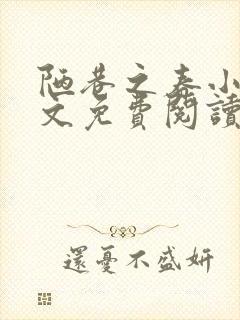 陋巷之春小
文免費閱讀
還憂不盛妍